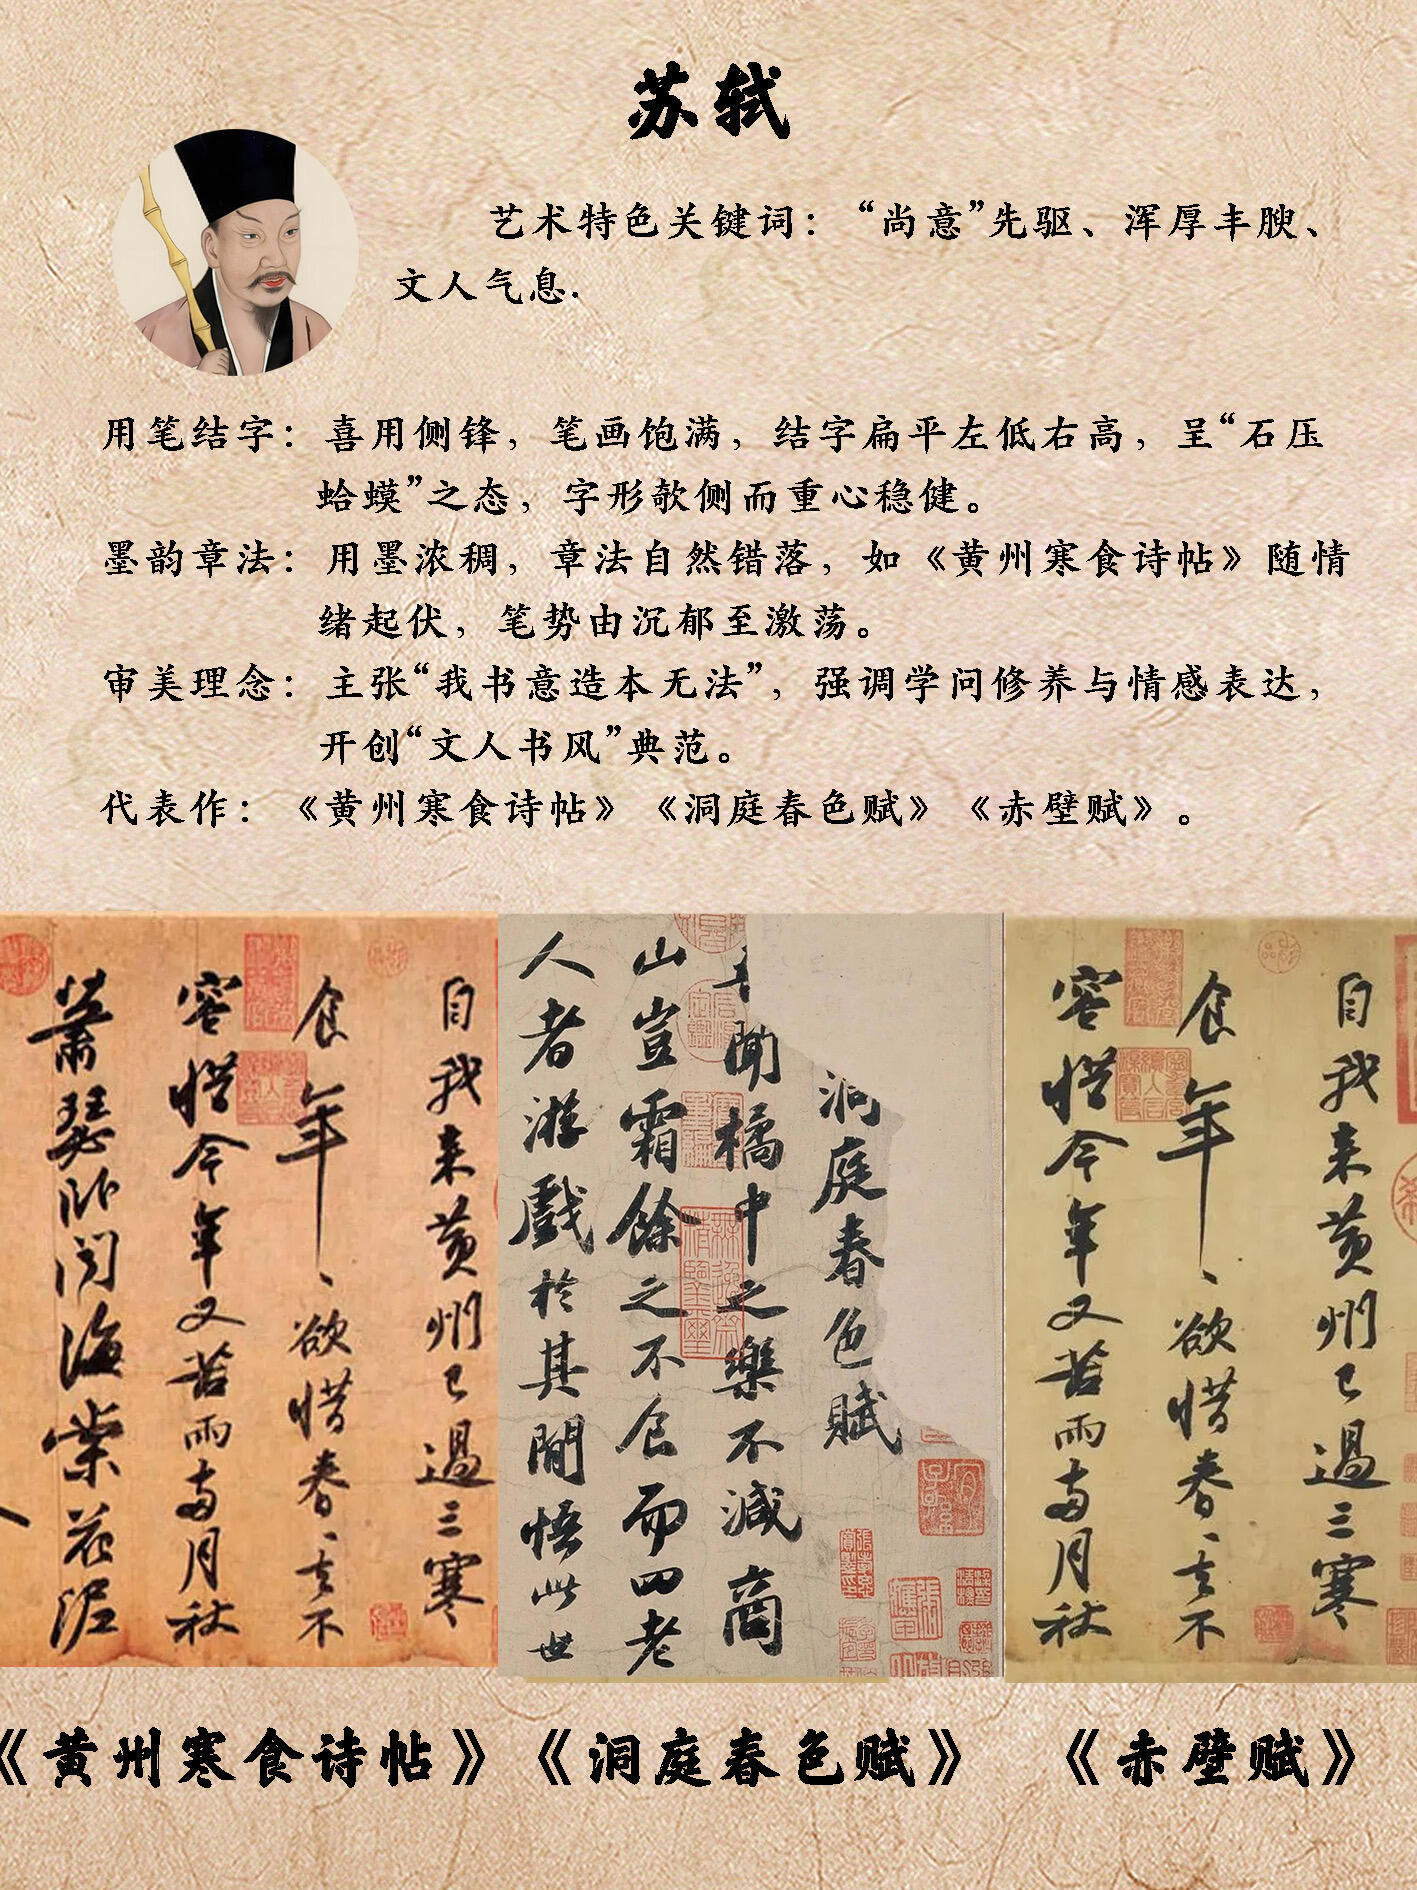 苏轼
艺术特色关键词：“尚意”先驱、浑厚丰腴、
文人气息.
用笔结字：喜用侧锋，笔画饱满，结字扁平左低右高，呈“石压
蛤蟆”之态，字形欹侧而重心稳健。
墨韵章法：用墨浓稠，章法自然错落，如《黄州寒食诗帖》随情
绪起伏，笔势由沉郁至激荡。
审美理念：主张“我书意造本无法”，强调学问修养与情感表达，
开创“文人书风”典范。
代表作：《黄州寒食诗帖》《洞庭春色赋》《赤壁赋》。
自我来黄州已过三寒
食年、欲惜春、去不
容惜今年又苦雨两月秋
萧瑟卧闻海棠花泥
洞庭春色赋
闻橘中之樂不減商
山豈霜餘之不食而四老
人者游戲於其間悟此世
自我来黄州已過三寒
食年、欲惜春、去不
容惜今年又苦雨两月秋
《黄州寒食诗帖》
《洞庭春色赋》
《赤壁赋》